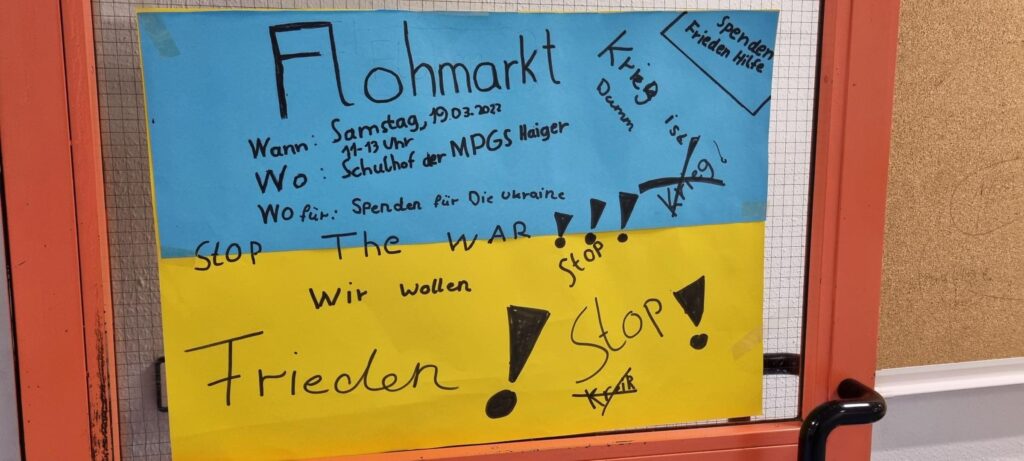 Flohmarkt
Wann: Samstag, 19.03.2022
11-13 Uhr
Wo: Schulhof der MPGS Haiger
Wofür: Spenden für Die Ukraine
STOP The WAR !!!
Wir wollen
Frieden!
Spenden
Frieden Hilfe
Krieg ist
Dumm
Krieg!
Stop
Stop!